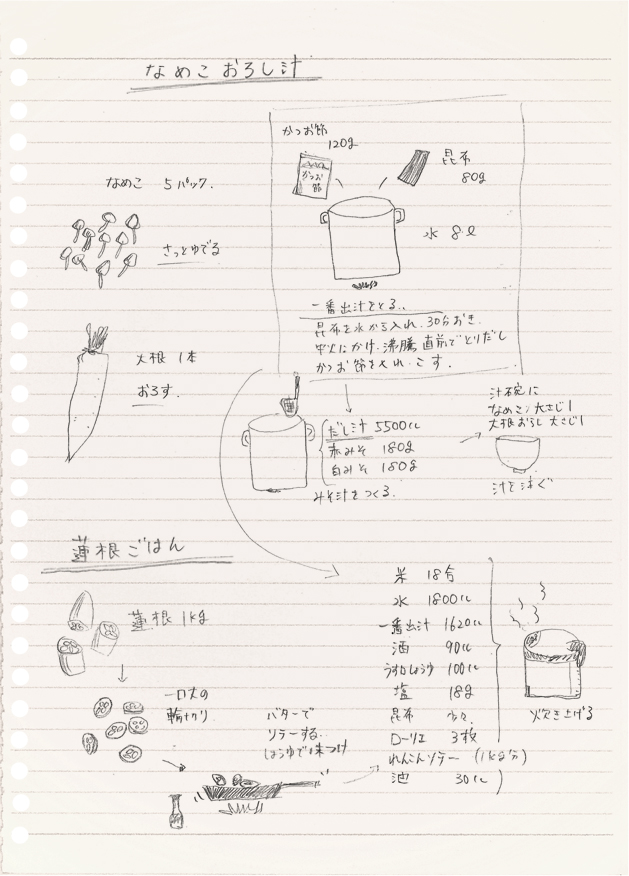 なめこおろし汁
かつお節
120g
かつお
節
昆布
80g
なめこ 5パック.
水 8ℓ
さっとゆでる
一番出汁をとる.
昆布を水から入れ.30分おき.
中火にかけ.沸騰直前でとりだし
かつお節を入れ.こす.
大根 1本
おろす.
だし汁 5500cc
赤みそ 180g
白みそ 180g
みそ汁をつくる.
汁椀に
なめこ 大さじ1
大根おろし 大さじ1
汁を注ぐ
蓮根ごはん
蓮根 1kg
一口大の
輪切り
バターで
ソテーする.
しょうゆで味つけ
米 18合
水 1800cc
一番出汁 1620cc
酒 90cc
うすくちしょうゆ 100cc
塩 18g
昆布 少々.
ローリエ 3枚
れんこんソテー (1kg分)
油 30cc
炊き上げる